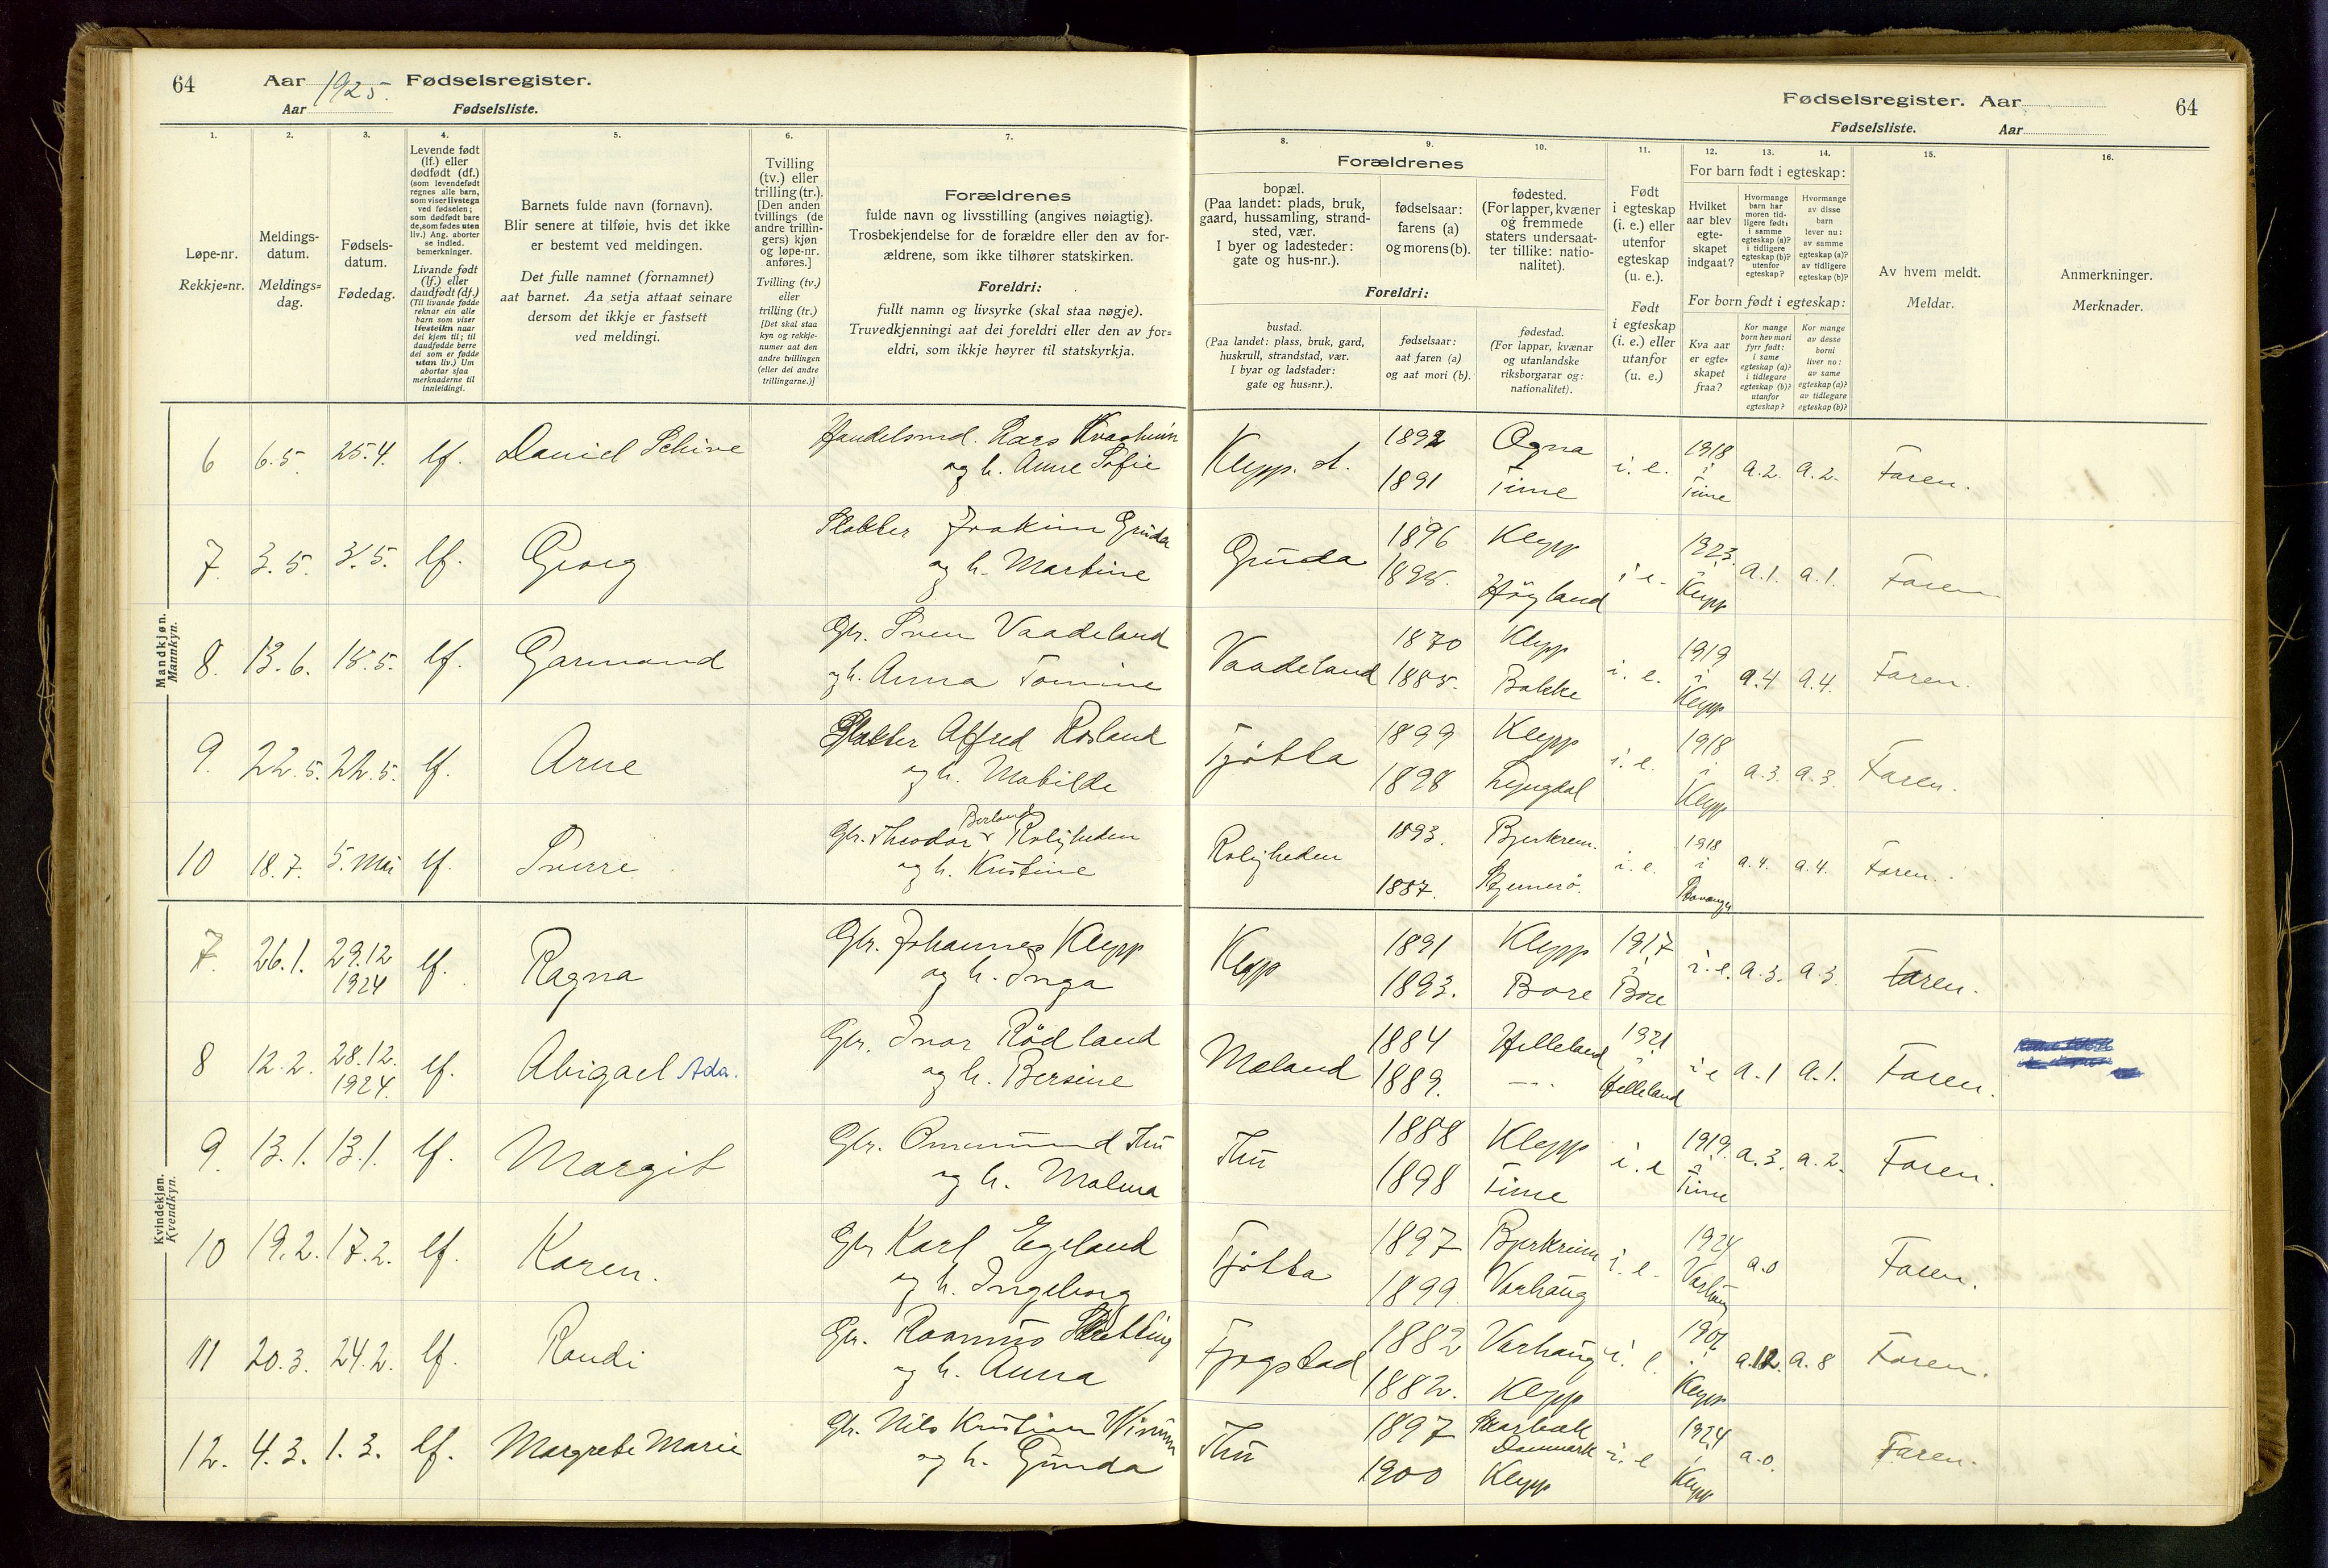 64 Aar 1925. Fødselsregister.
Aar Fødselsliste.
Fødselsregister. Aar 64
Fødselsliste. Aar
1. 2. 3. 4. 5. 6. 7. 8. 9. 10. 11. 12. 13. 14. 15. 16.
Løpe-nr.
Rekkje=nr.
Meldings-
datum.
Meldings=
dag.
Fødsels-
datum.
Fødedag.
Levende født
(lf.) eller
dødfødt (df.)
(som levendefødt
regnes alle barn,
som viser livstegn
ved fødselen;
som dødfødt bare
de, som fødes uten
liv.) Ang. aborter
se indled.
bemerkninger.
Livande født
(lf.) eller
daudfødt (df.)
(Til livande fødde
reknar ein alle
barn som viser
livsteikn naar
dei kjem til; til
daudfødde berre
dei som er fødde
utan liv.) Um
abortar sjaa
merknaderne til
innleidingi.
Barnets fulde navn (fornavn).
Blir senere at tilføie, hvis det ikke
er bestemt ved meldingen.
Det fulle namnet (fornamnet)
aat barnet. Aa setja attaat seinare
dersom det ikkje er fastsett
ved meldingi.
Tvilling
(tv.) eller
trilling (tr.).
[Den anden
tvillings (de
andre trillin-
gers) kjøn
og løpe-nr.
anføres.]
Tvilling (tv.)
eller
trilling (tr.)
[Det skal staa
kyn og rekkje-
numer aat den
andre tvillingen
(eller dei andre
trillingarne.)]
Forældrenes
fulde navn og livsstilling (angives nøiagtig).
Trosbekjendelse for de forældre eller den av for-
ældrene, som ikke tilhører statskirken.
Foreldri:
fullt namn og livsyrke (skal staa nøgje).
Truvedkjenningi aat dei foreldri eller den av for=
eldri, som ikkje høyrer til statskyrkja.
Forældrenes
bopæl.
(Paa landet: plads, bruk,
gaard, hussamling, strand-
sted, vær.
I byer og ladesteder:
gate og hus-nr.).
fødselsaar:
farens (a)
og morens (b).
fødested.
(For lapper, kvæner
og fremmede
staters undersaat-
ter tillike: natio-
nalitet).
Foreldri:
bustad.
(Paa landet: plass, bruk, gard,
huskrull, strandstad, vær.
I byar og ladstader:
gate og hus=nr.).
fødselsaar:
aat faren (a)
og aat mori (b).
fødestad.
(For lappar, kvænar
og utanlandske
riksborgarar og:
nationalitet).
Født
i egteskap
(i. e.) eller
utenfor
egteskap
(u. e.).
Født
i egteskap
(i. e.) eller
utanfor
(u. e.)
For barn født i egteskap:
Hvilket
aar blev
egte-
skapet
indgaat?
Hvormange
barn har
moren tid-
ligere født,
i samme
egteskap (a)?
i tidligere
egteskap (b)?
utenfor
egteskap?
Hvormange
av disse
barn
lever nu:
av samme
egteskap (a)?
av tidligere
egteskap (b)?
For born født i egteskap:
Kva aar
er egte=
skapet
fraa?
Kor mange
born hev mori
fyrr født:
i same
egteskap (a)?
i tidlegare
egteskap (b)?
utanfor
egteskap?
Kor mange
av desse
borni
liver no:
av same
egteskap (a)?
av tidlegare
egteskap (b)?
Av hvem meldt.
Meldar.
Anmerkninger.
Merknader.
Mandkjøn.
Mannkyn.
6 6.5 25.4. lf. Daniel Schive Handelsmd. Lars
og h. Anne Sofie
Klepp. st. 1892 Ogna i. e. 1918 a.2. a.2. Faren.
1891 Time i Time
7. 3.5. 3.5. lf. Georg Slakter Joakim Gruda
og h. Martine
Gruda 1896 Klepp i e. 1923. a.1. a.1. Faren
Høyland i Klepp
8. 13.6. 18.5. lf. Garmand Gbr. Sven Vaadeland
og h. Anna Tomine
Vaadeland 1870 Klepp i. e. 1919 a.4 a.4. Faren.
1885. Bakke i Klepp
9. 22.5. 22.5. lf. Arne Slakter Alfred Rosland
og h. Mathilde
Tjøtta 1899 Klepp i. e. 1918 a.3. a.3. Faren.
1898 Lyngdal i Klepp
10 18.7. 5. Mai lf. Sverre Gbr. Theodor Berland Roligheden
og h. Kristine
Roligheden 1893. Bjerkrem. i. e. 1918 a.4. a.4. Faren.
1887. i Stavanger
Kvindekjøn.
Kvendkyn.
7. 26.1. 29.12 1924 lf. Ragna Gbr. Johannes Klepp
og h. Inga
Klepp 1891 Klepp 1917 i. e. a.3. a.3 Faren.
1893. Bore i Bore
8 12.2. 28.12. 1924. lf. Abigael Ada. Gbr. Ivar Rødland
og h. Bersine
Mæland 1884 Helleland 1921 i e a.1 a.1. Faren.
1889. — i Helleland
9. 13.1. 13.1. lf. Margit Gbr. Ommund Thu
og h. Malena
Thu 1888 Klepp i. e 1919. a.3. a.2. Faren.
1898 Time i Time
10 19.2. 17.2. lf. Karen. Gbr Karl Egeland
og h. Ingeborg
Tjøtta 1897 Bjerkreim i. e. 1924 a.0 Faren.
1899. Varhaug Varhaug
11 20.3. 24.2. lf. Randi Gbr. Rasmus
og h. Anna
Fjogstad 1882 Varhaug i. e. a.12. a.8 Faren.
1882. Klepp i Klepp
12. 4.3. 1.3. lf. Margrete Marie Gbr. Nils Kristian
og h. Gunda
Thu 1897 Skarbæk Danmark i. e 1924 a.0. Faren.
1900 Klepp i Klepp